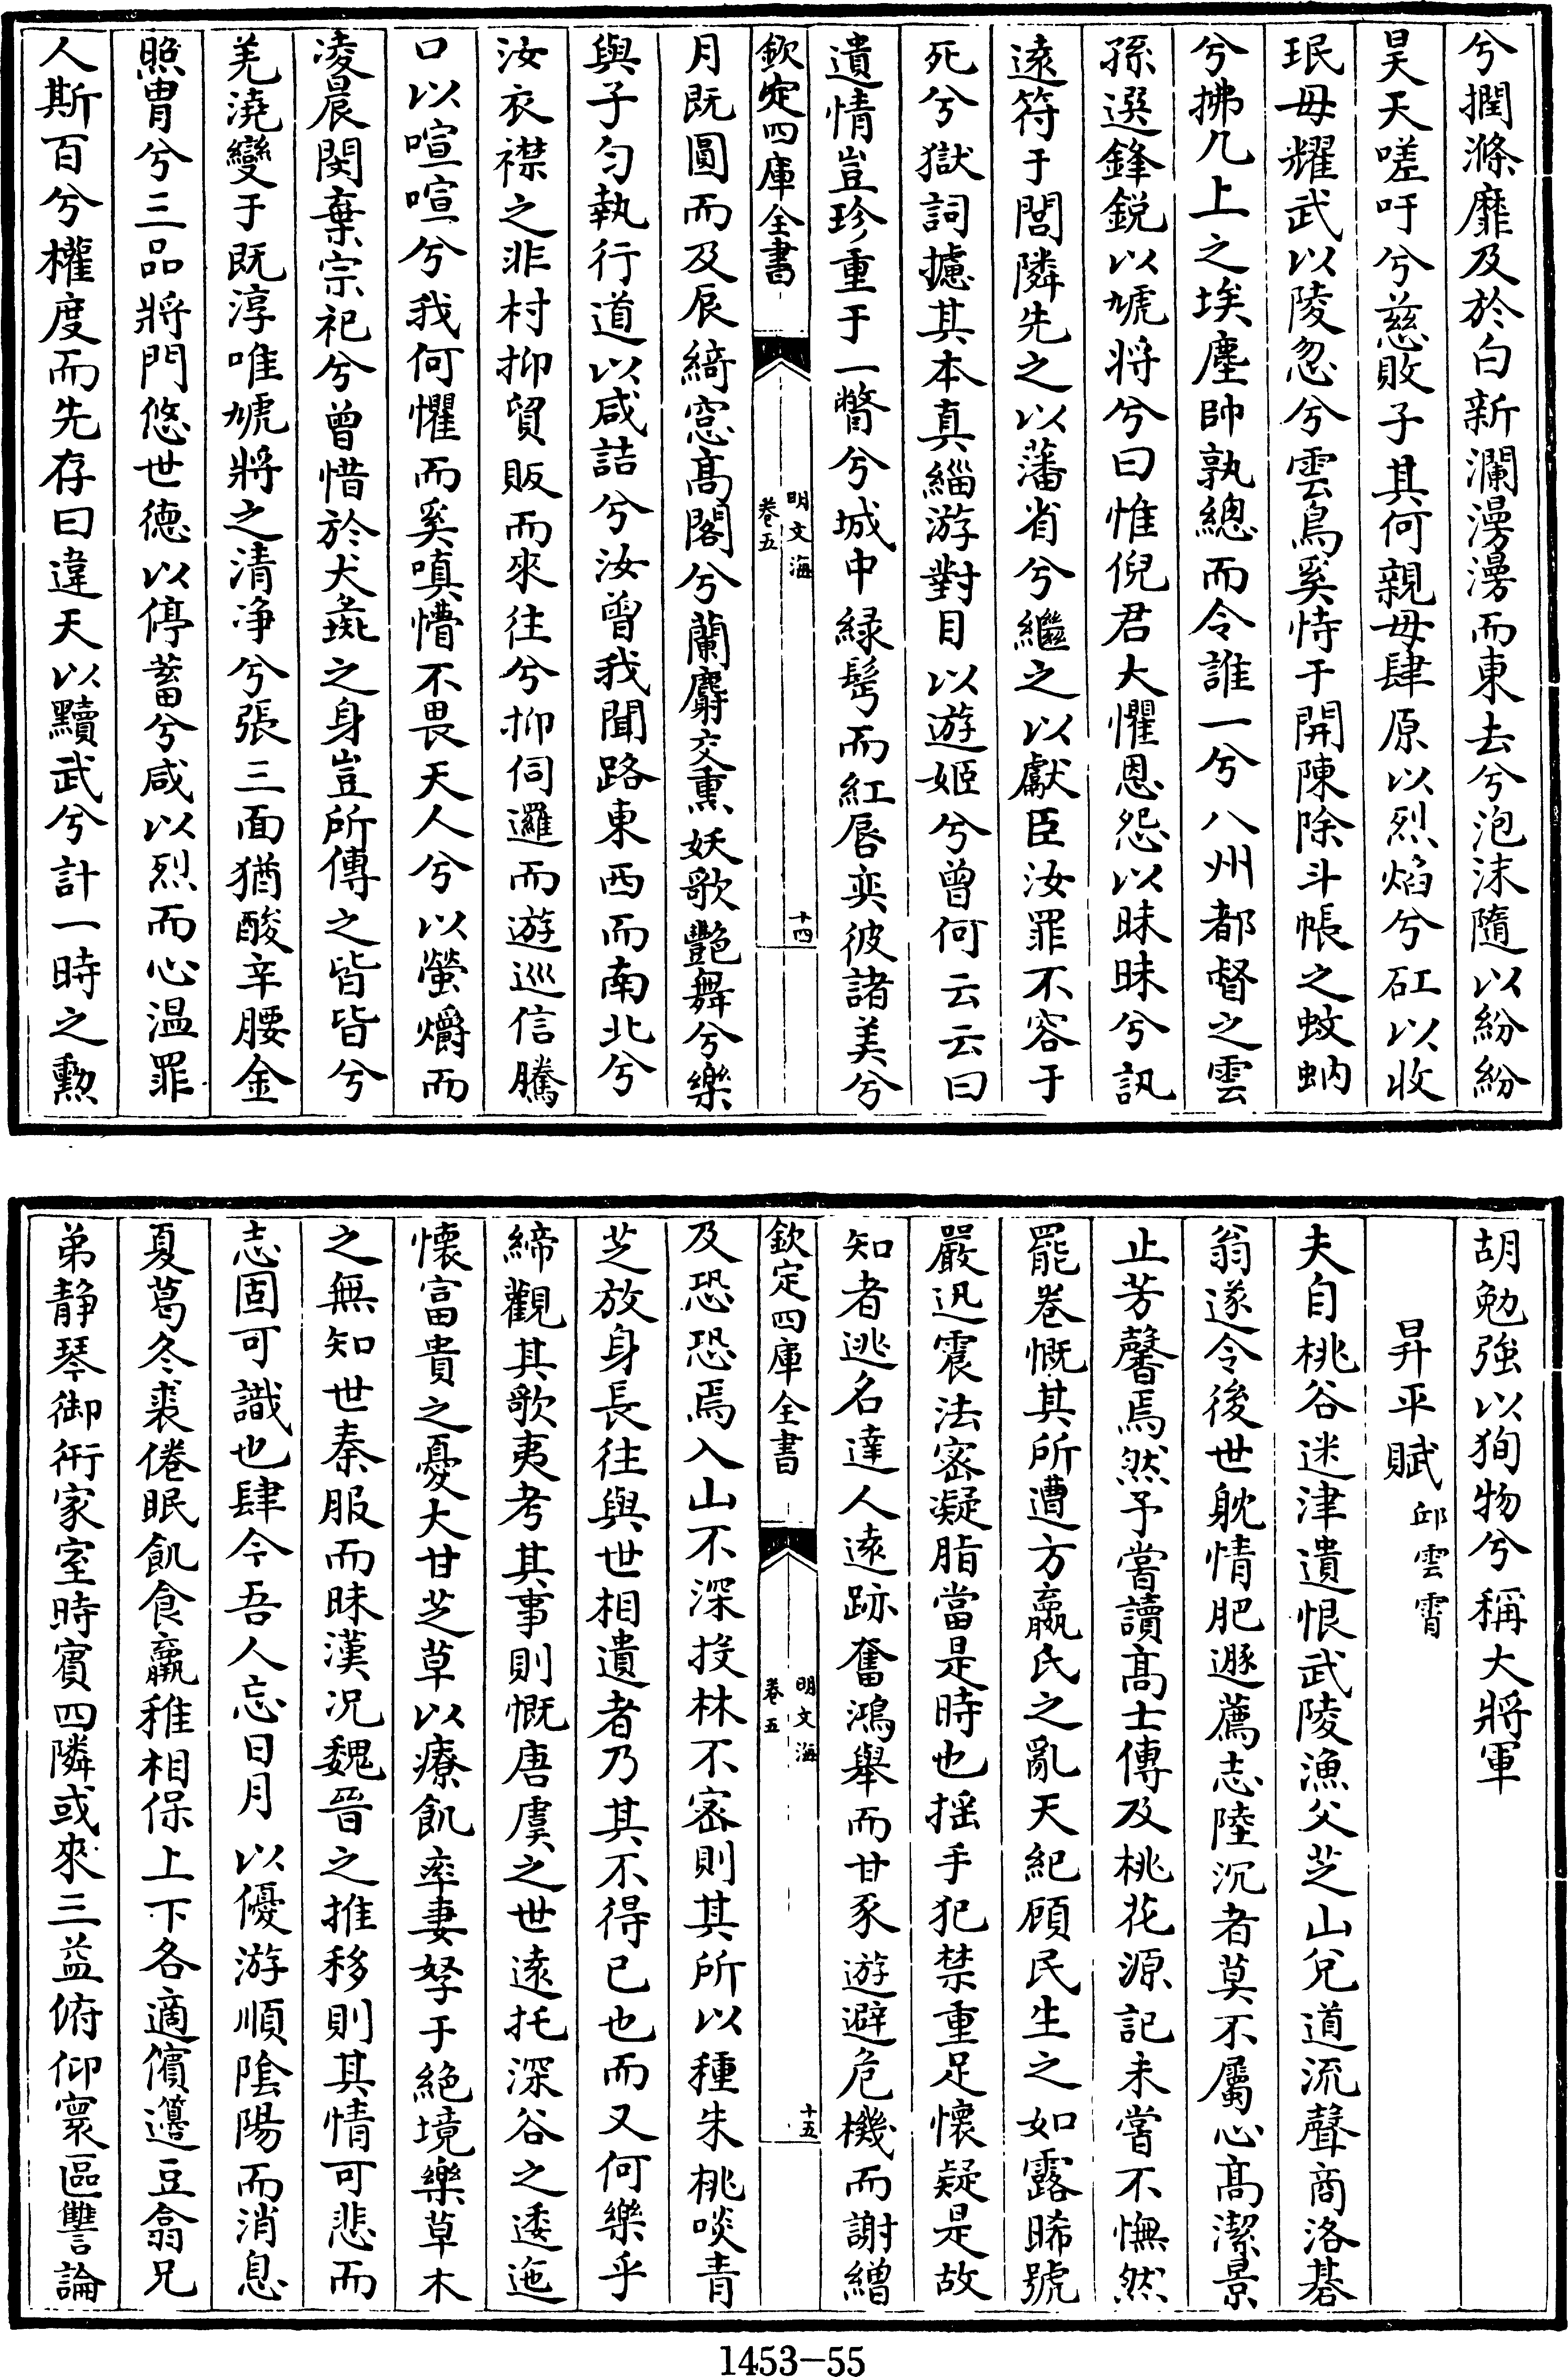 兮撋滌靡及於白新瀾漫漫而東去兮泡沫隨以紛紛
昊天嗟吁兮慈敗子其何親毋肆原以烈焰兮矼以收
珉毋耀武以陵忽兮雲鳥奚恃于開陳除斗帳之蚊蚋
兮拂几上之埃塵帥孰總而令誰一兮八州都督之雲
孫選鋒銳以虓将兮曰惟倪君大懼恩怨以昧昧兮訊
遠符于閭隣先之以藩省兮繼之以獻臣汝罪不容于
死兮獄詞攄其本真緇游對目以遊姬兮曾何云云曰
遺情豈珍重于一瞥兮城中緑髩而紅唇奕彼諸美兮
欽定四庫全書
明文海
卷五
十四
月既圓而及辰綺窓髙閣兮蘭麝交熏妖歌艷舞兮樂
與子匀執行道以咸詰兮汝曾我聞路東西而南北兮
汝衣襟之非村抑貿販而來往兮抑伺邏而遊巡信騰
口以喧喧兮我何懼而奚嗔懵不畏天人兮以螢爝而
凌晨閔棄宗祀兮曾惜於犬彘之身豈所傳之皆皆兮
羌澆變于既淳唯虓將之清净兮張三面猶酸辛腰金
照胄兮三品將門悠世德以停蓄兮咸以烈而心温罪
人斯百兮權度而先存曰違天以黷武兮計一時之勲
胡勉強以狥物兮稱大將軍
昇平賦 邱雲霄
夫自桃谷迷津遺恨武陵漁父芝山兊道流聲商洛碁
翁遂令後世躭情肥遯薦志陸沉者莫不屬心髙潔景
止芳馨焉然予嘗讀髙士傳及桃花源記未嘗不憮然
罷卷慨其所遭方嬴氏之亂天紀顧民生之如露晞號
嚴迅震法宻凝脂當是時也揺手犯禁重足懷疑是故
知者逃名達人遠跡奮鴻舉而甘豕遊避危機而謝繒
欽定四庫全書
明文海
卷五
十五
及恐恐焉入山不深投林不宻則其所以種朱桃啖青
芝放身長往與世相遺者乃其不得已也而又何樂乎
締觀其歌夷考其事則慨唐虞之世遠托深谷之逶迤
懷富貴之憂大甘芝草以療飢率妻孥于絶境樂草木
之無知世秦服而昧漢况魏晉之推移則其情可悲而
志固可識也肆今吾人忘日月以優游順隂陽而消息
夏葛冬裘倦眠飢食羸稚相保上下各適儐籩豆翕兄
弟静琴御衎家室時賓四隣或來三益俯仰寰區讐論
1453-55